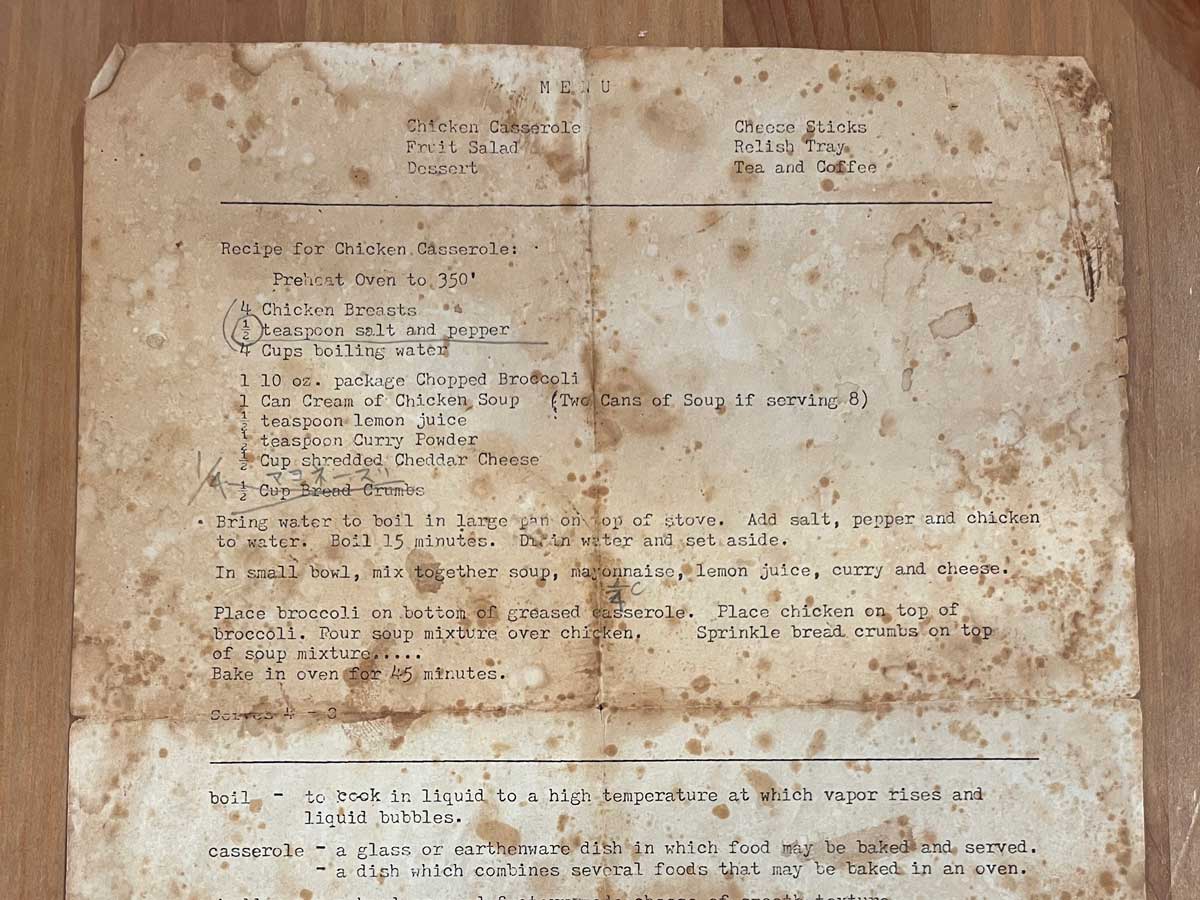 MENU
Chicken Casserole Cheese Sticks
Fruit Salad Relish Tray
Dessert Tea and Coffee
Recipe for Chicken Casserole:
Preheat Oven to 350'
4 Chicken Breasts
½ teaspoon salt and pepper
4 Cups boiling water
1 10 oz. package Chopped Broccoli
1 Can Cream of Chicken Soup (Two Cans of Soup if serving 8)
½ teaspoon lemon juice
½ teaspoon Curry Powder
½ Cup shredded Cheddar Cheese
1/4 マヨネーズ
½ Cup Bread Crumbs
Bring water to boil in large pan on top of stove. Add salt, pepper and chicken
to water. Boil 15 minutes. Drain water and set aside.
In small bowl, mix together soup, mayonnaise, lemon juice, curry and cheese.
¼ c
Place broccoli on bottom of greased casserole. Place chicken on top of
broccoli. Pour soup mixture over chicken. Sprinkle bread crumbs on top
of soup mixture.....
Bake in oven for 45 minutes.
Serves 4 -
boil - to cook in liquid to a high temperature at which vapor rises and
liquid bubbles.
casserole - a glass or earthenware dish in which food may be baked and served.
- a dish which combines several foods that may be baked in an oven.